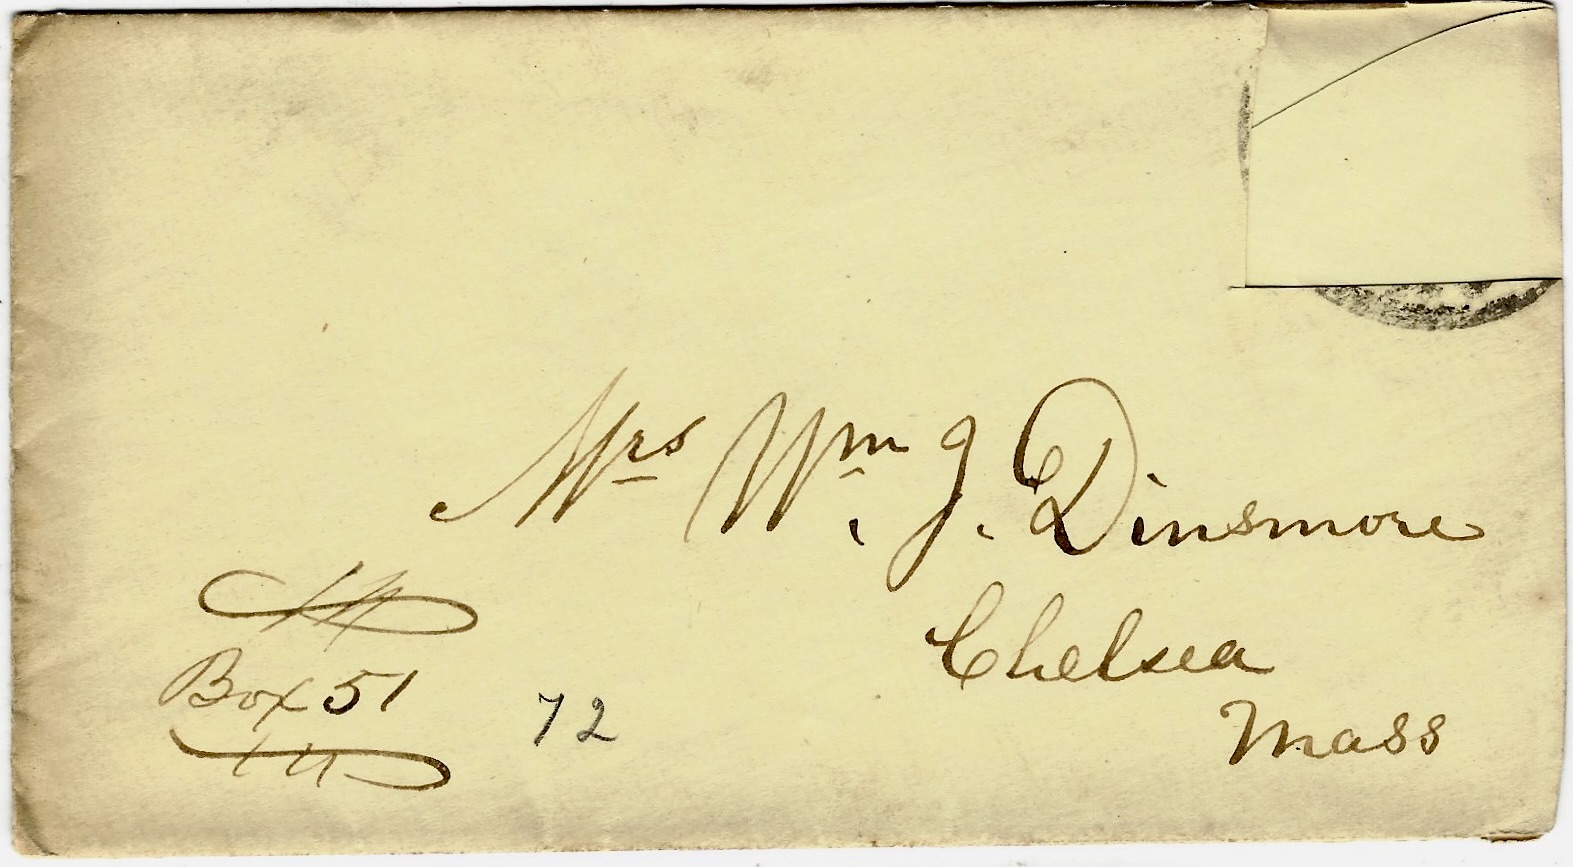 Mrs Wm. J. Dinsmore
Chelsea
Mass
Box 51
72